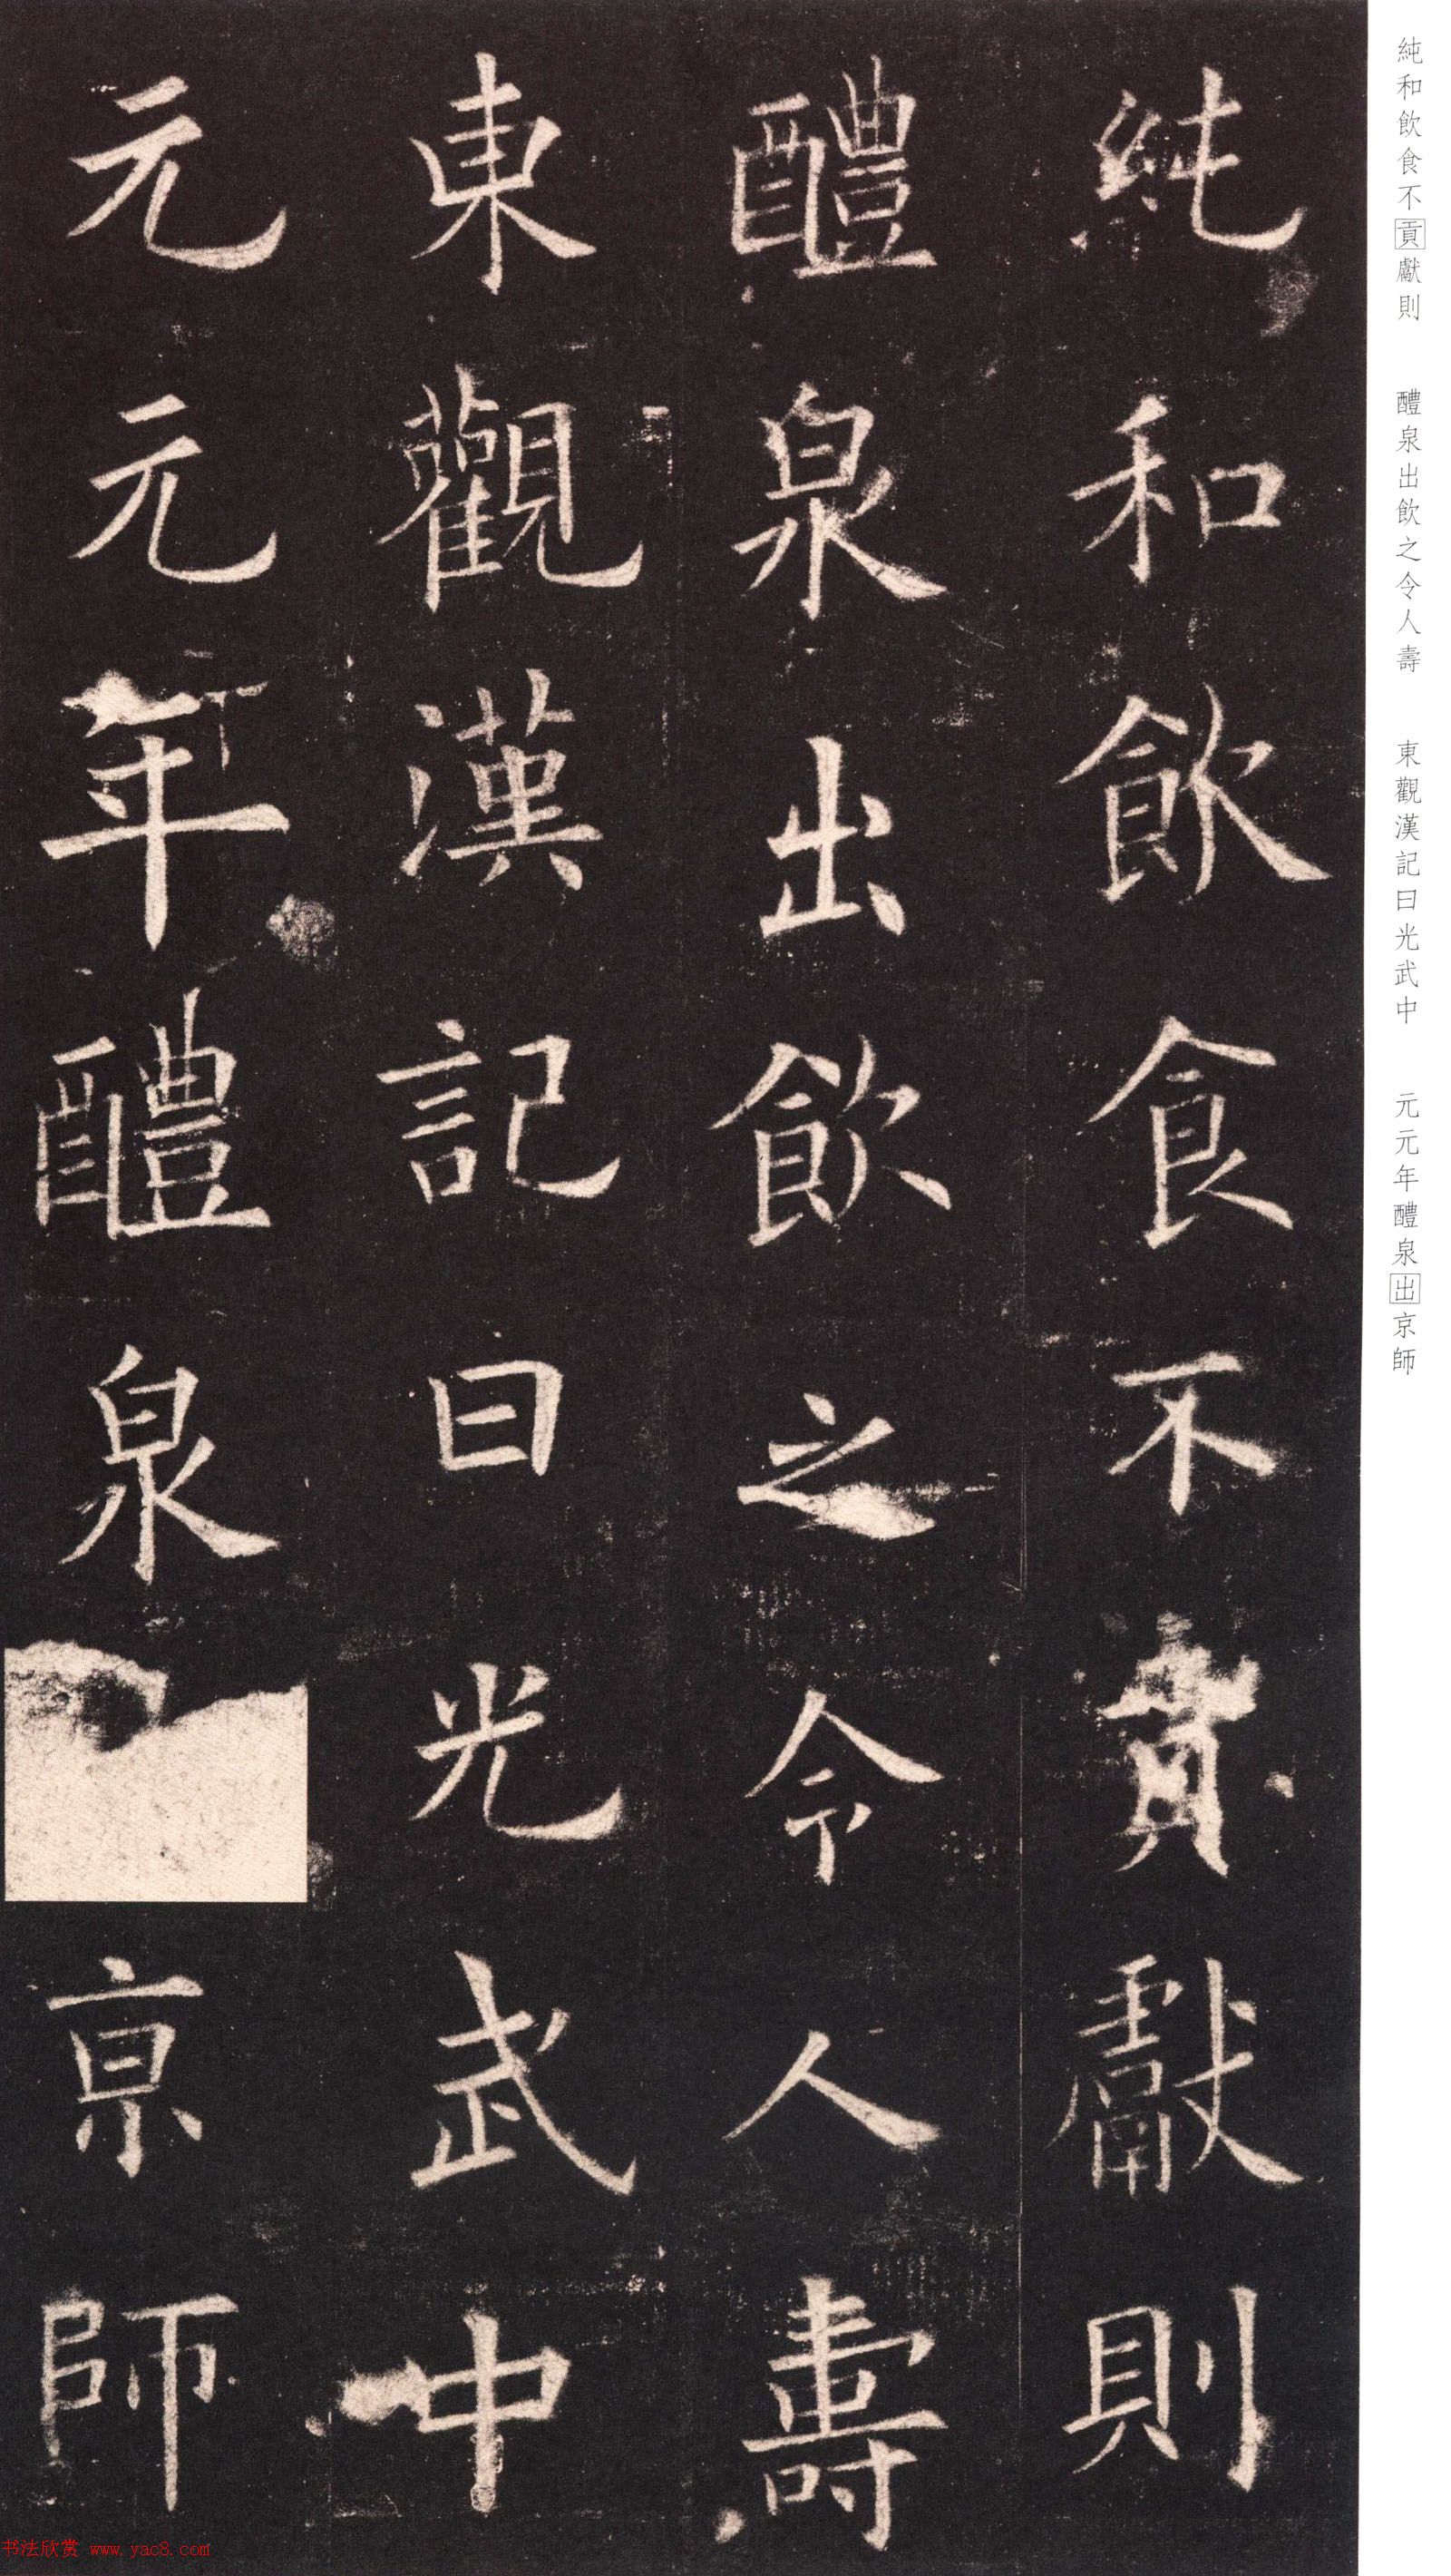 純和飲食不貢獻則
醴泉出飲之令人壽
東觀漢記曰光武中
元元年醴泉京師
純和飲食不貢獻則 醴泉出飲之令人壽 東觀漢記曰光武中 元元年醴泉出京師
书法欣赏 www.yac8.com